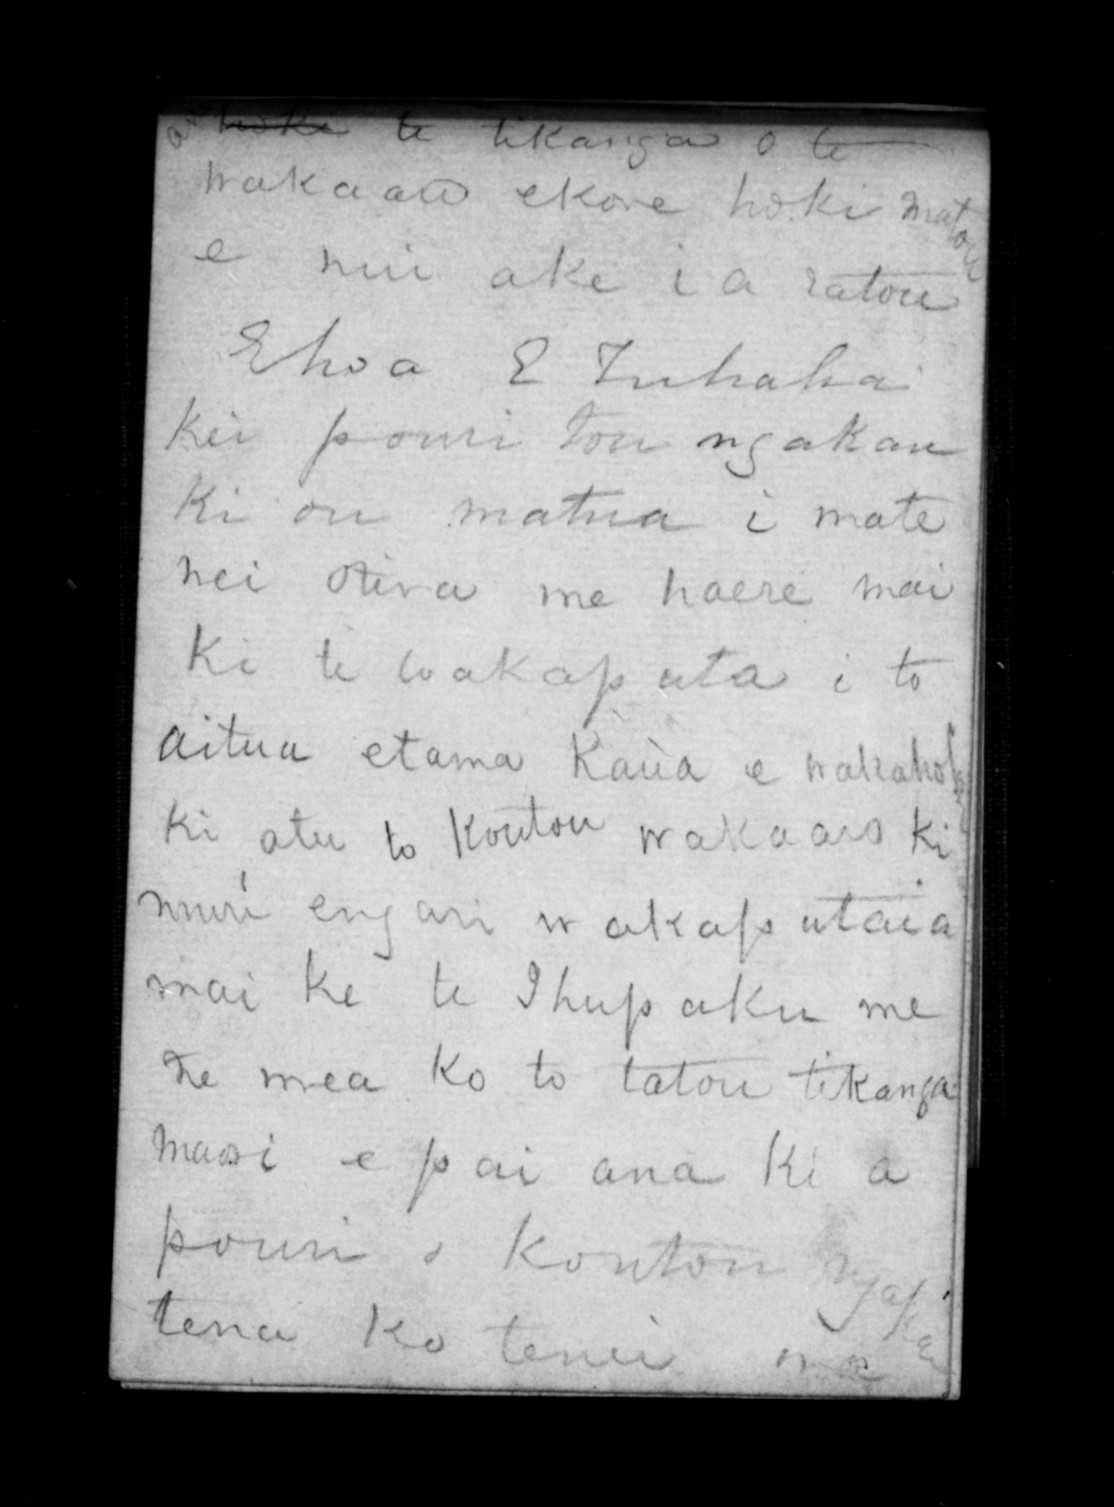 ano hoki te tikanga o te
wakaaro ekore hoki matou
e nui ake i a ratou
Ehoa E Tuhaha
kei pouri tou ngakau
Ki ou matua i mate
nei otira me haere mai
Ki te wakaputa i to
aitua etama Kaua e wakahoki
ki atu to Koutou wakaaro ki
muri engari wakaputaia
mai ke te Ihupaku me
he mea ko to tatou tikanga
maori e pai ana ki a
pouri o koutou ngakau
tena ko tenei